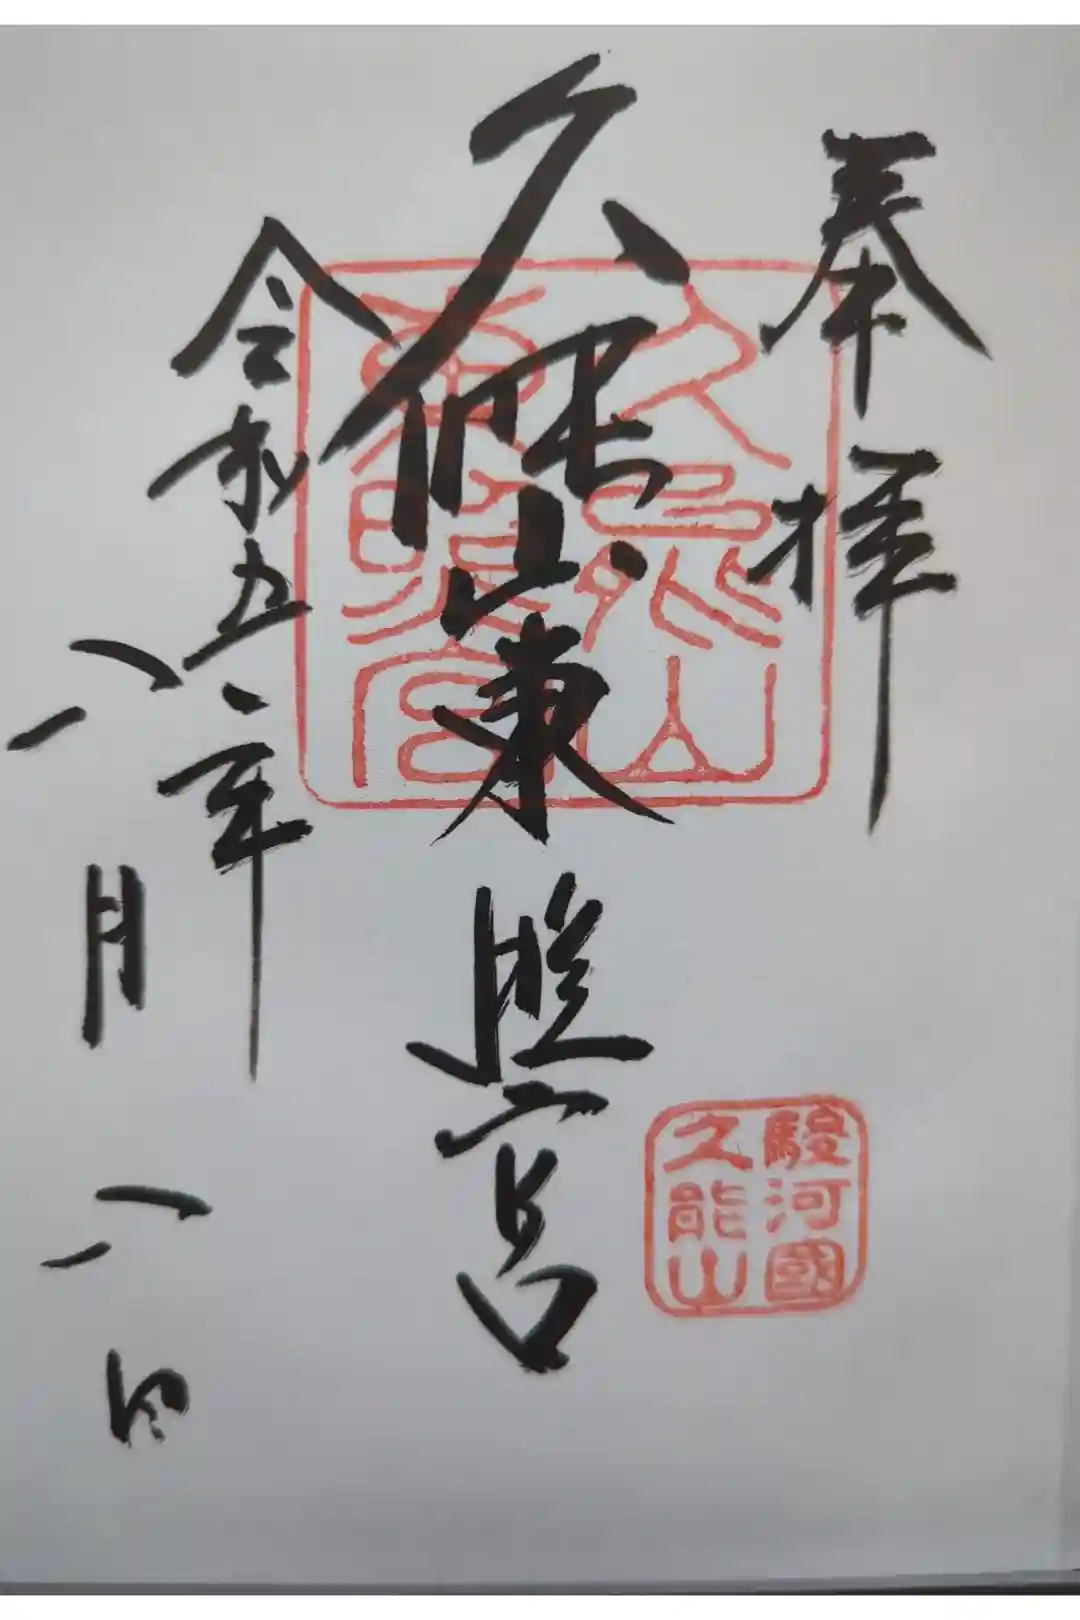 奉拝
久能山東照宮
久能山
東照宮
駿河國
久能山
令和五年
八月八日